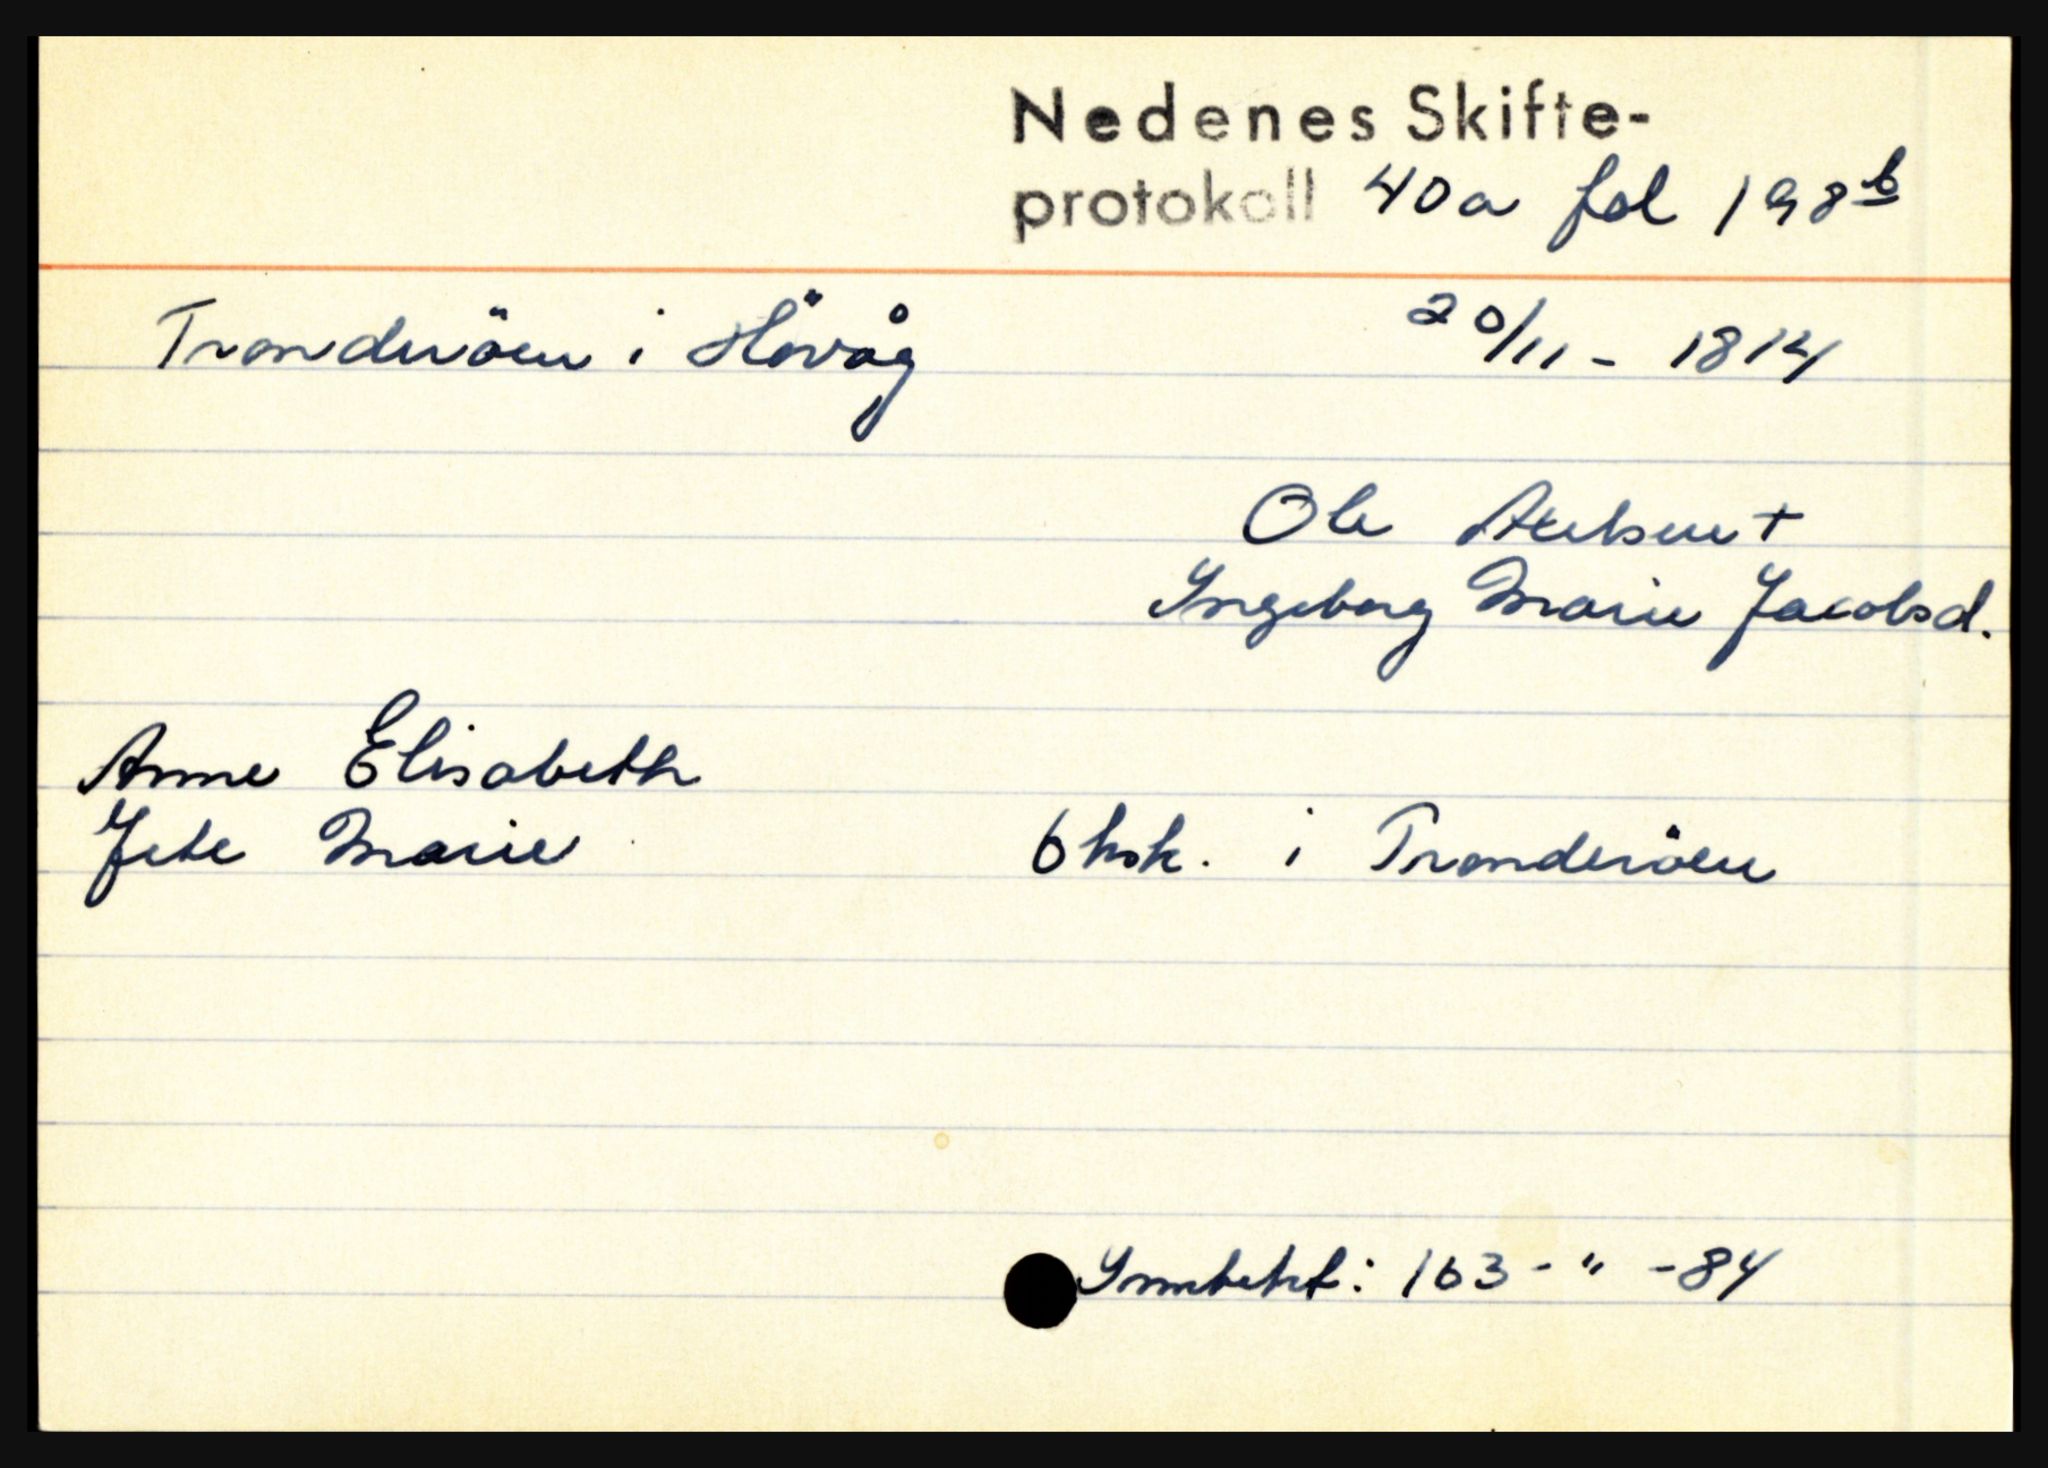 Nedenes Skifte-
protokoll 40a fol 198b
Tronderöen i Hövåg 20/11 - 1814
Ole +
Ingeborg Marie Jacobsd.
Anne Elisabeth
Jete Marie 6 hsk. i Tronderöen
163 - " - 84